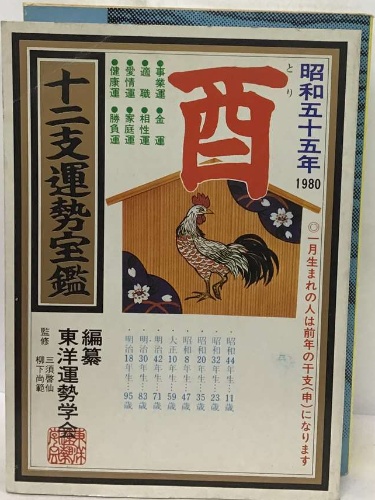 昭和五十五年
1980
酉
とり
●事業運
●金運
●適職
●相性運
●愛情運
●家庭運
●健康運
●勝負運
十二支運勢宝鑑
◎一月生まれの人は前年の干支(申)になります
昭和44年生…11歳
昭和32年生…23歳
昭和20年生…35歳
昭和8年生…47歳
大正10年生…59歳
明治42年生…71歳
明治30年生…83歳
明治18年生…95歳
編纂
東洋運勢学会
監修
三須啓仙
柳下尚範